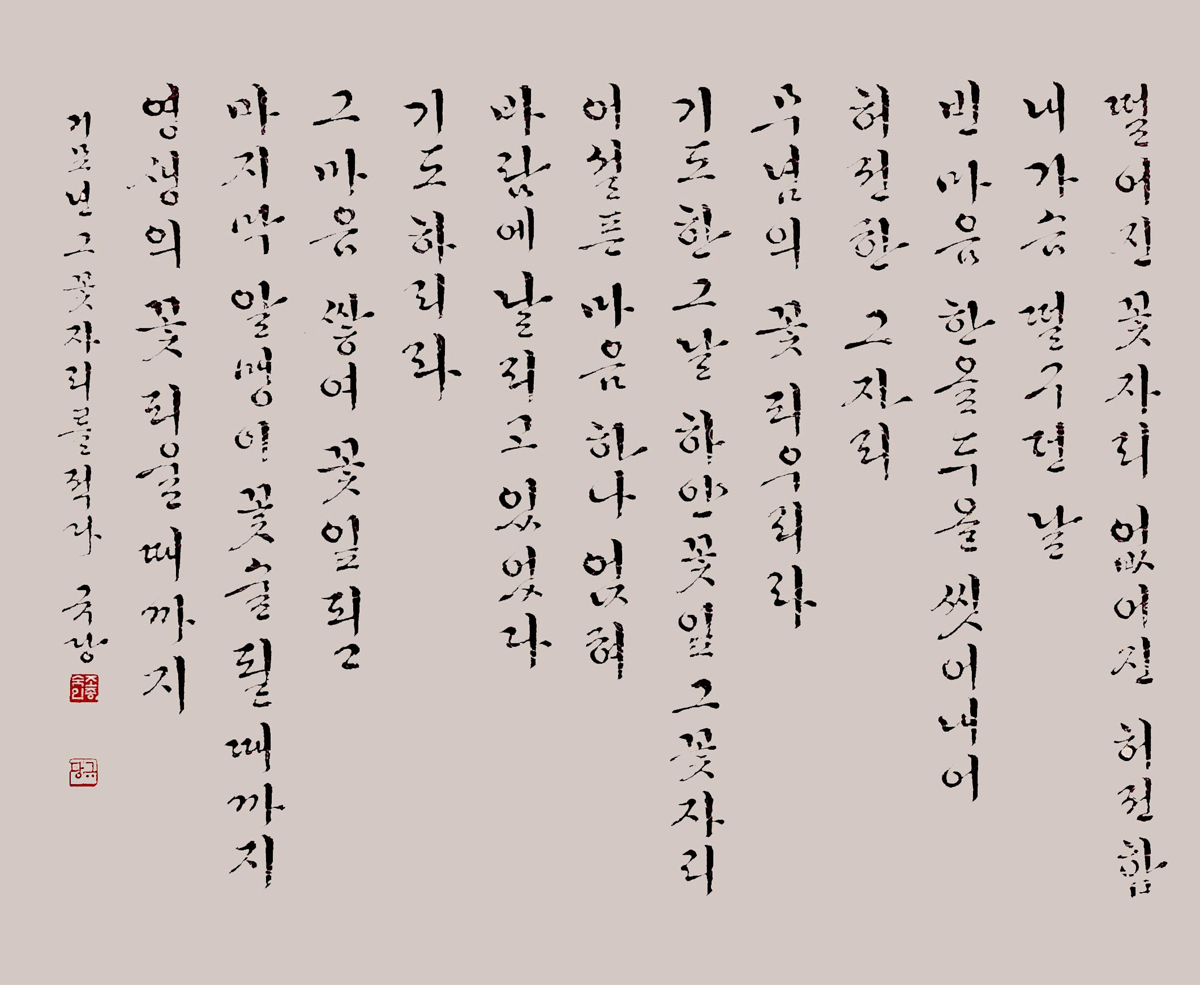 떨어진 꽃자리 없어진 허전함
내가슴 떨구던 날
빈마음 한을두을 씻어내어
허전한 그자리
무념의 꽃 피우리라
기도한그날 하얀꽃잎 그꽃자리
어설픈 마음 하나 얹혀
바람에날리고 있었다
기도하리라
그마음 쌓여 꽃잎되고
마지막 알맹이 꽃술될때까지
영생의 꽃피울때까지
기묘년 그꽃자리를적다 국당